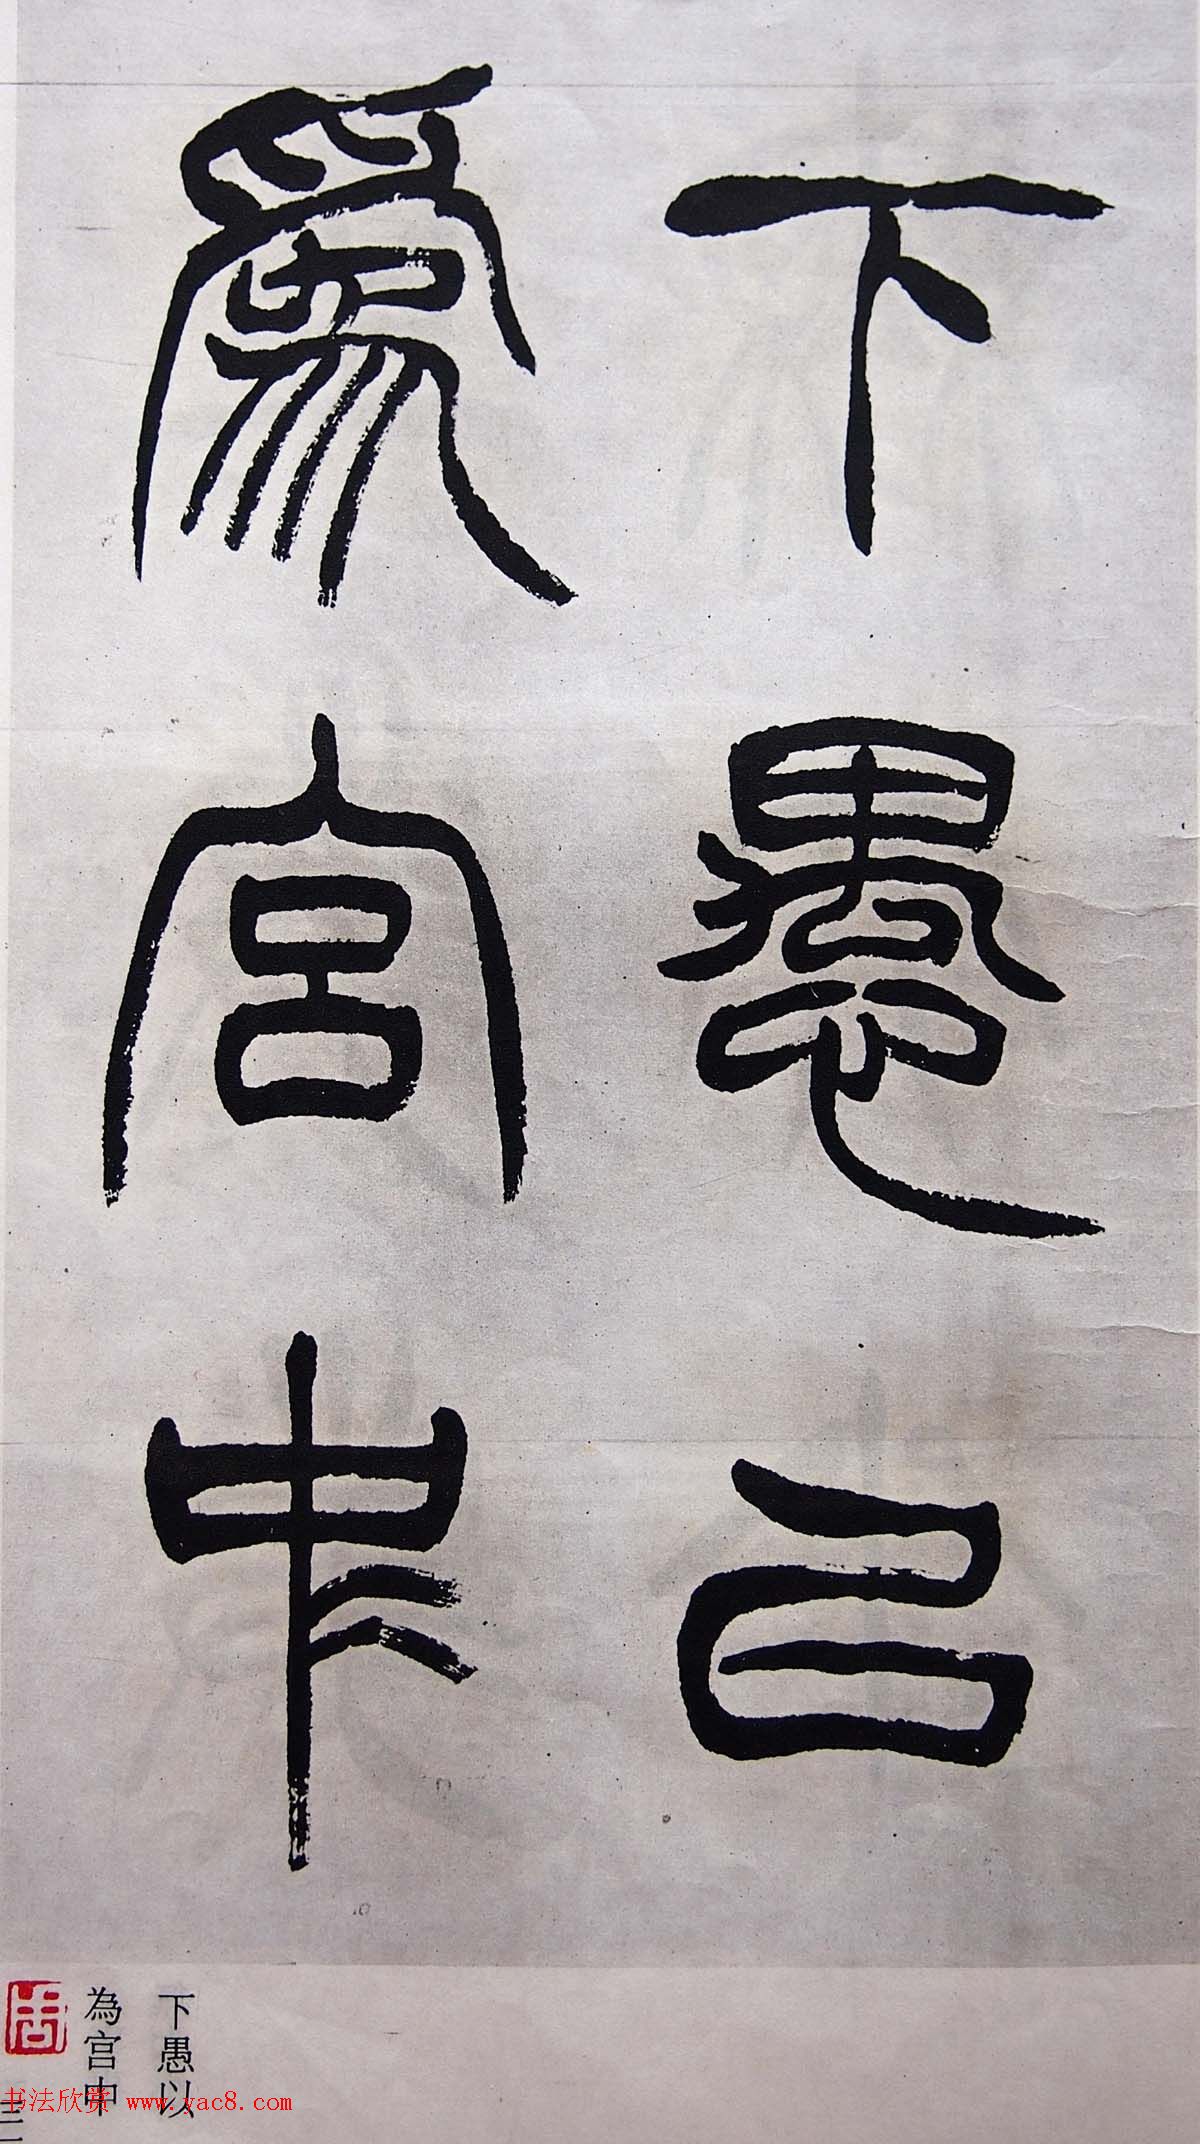 下愚以
為宮中
下愚以
為宮中
书法欣赏 www.yac8.com